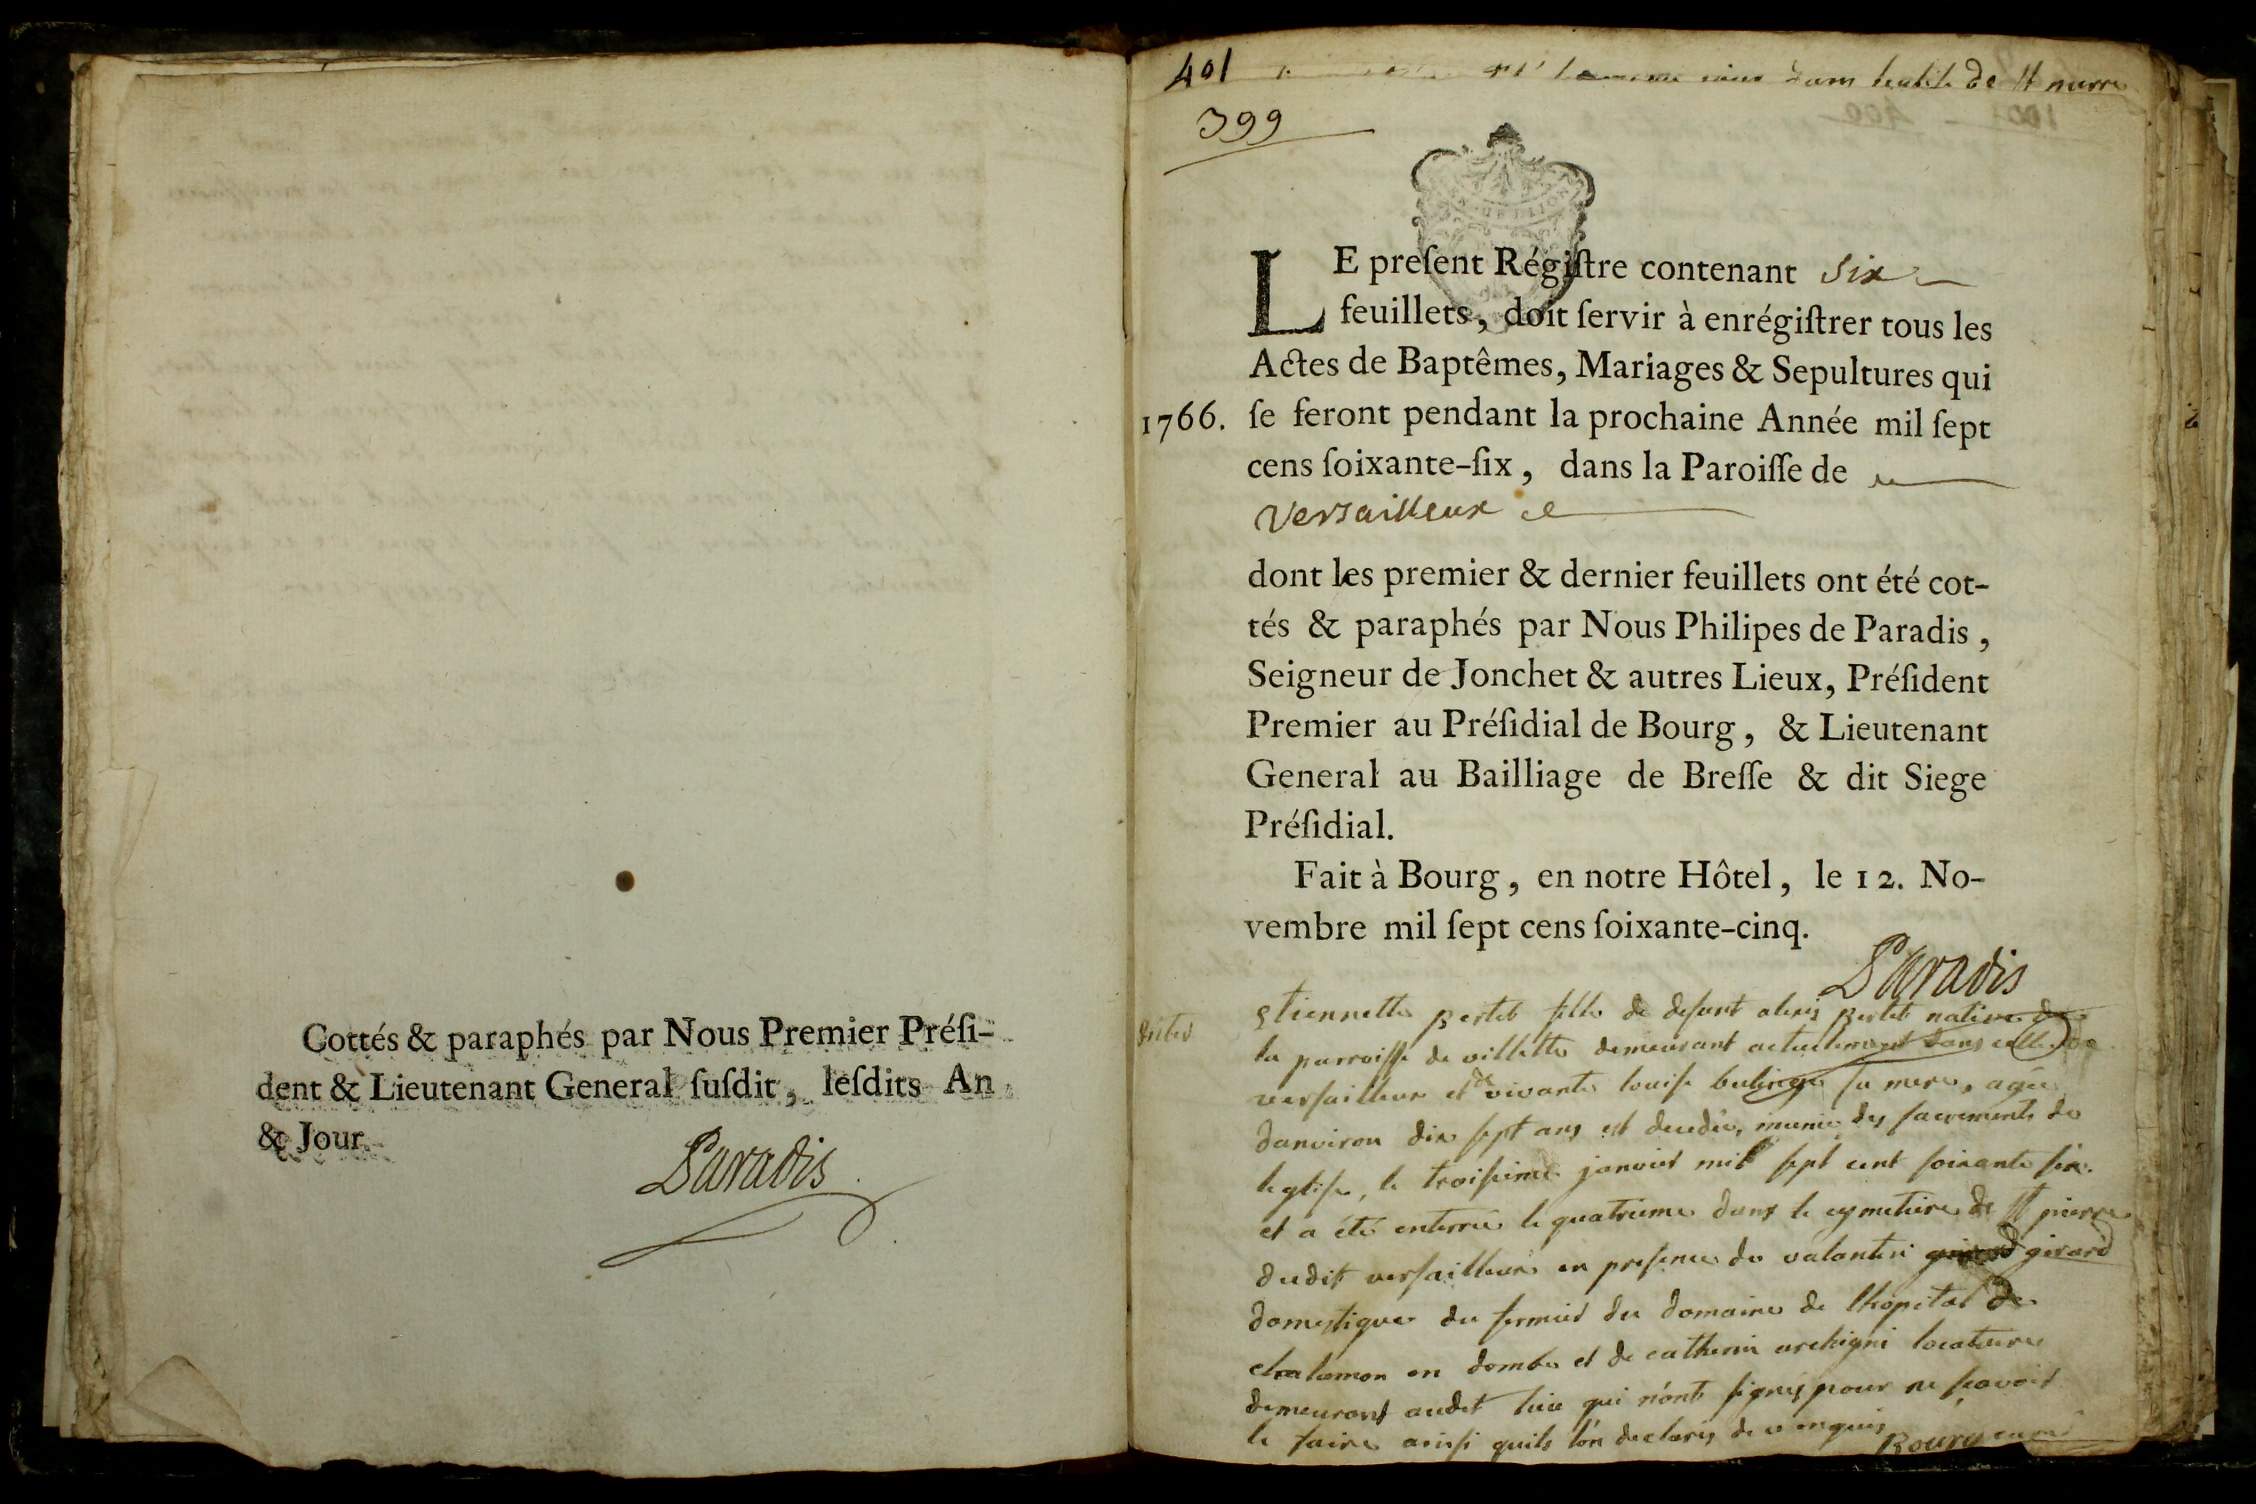 Cottés & paraphés par Nous Premier Présí-
dent & Lieutenant General suſdit, leſdits An
& Jour.
Paradis
401
de St pierre
399
LE preſent Régiſtre contenant six
feuillets, doit ſervir à enrégiſtrer tous les
Actes de Baptêmes, Mariages & Sepultures qui
1766. ſe feront pendant la prochaine Année mil ſept
cens ſoixante-ſix, dans la Paroiſſe de
Versailleux
dont les premier & dernier feuillets ont été cot-
tés & paraphés par Nous Philipes de Paradis,
Seigneur de Jonchet & autres Lieux, Préſident
Premier au Préſidial de Bourg, & Lieutenant
General au Bailliage de Breſſe & dit Siege
Préſidial.
Fait à Bourg, en notre Hôtel, le 12. No-
vembre mil ſept cens ſoixante-cinq.
Paradis
Etiennette Bertet fille de defunt alexis Bertet native de
la parroisse de villette demeurant actuellement dans celle de
versailleux et de vivante louise sa mere, agée
danviron dix sept ans est decedée, munie des sacrements de
leglise, le troisieme janvier mil sept cent soixante six.
et a été enterrée le quatrieme dans le cymetiere de St pierre
dudit versailleux en presence de valantin girard
domestique du fermier du domaine de lhopital de
chalamon en dombe et de catherin archigni locataire
demeurant audit lieu qui n'ont signés pour ne sçavoir
le faire ainsi quils l'on declarés de ce enquis
Bourg curé